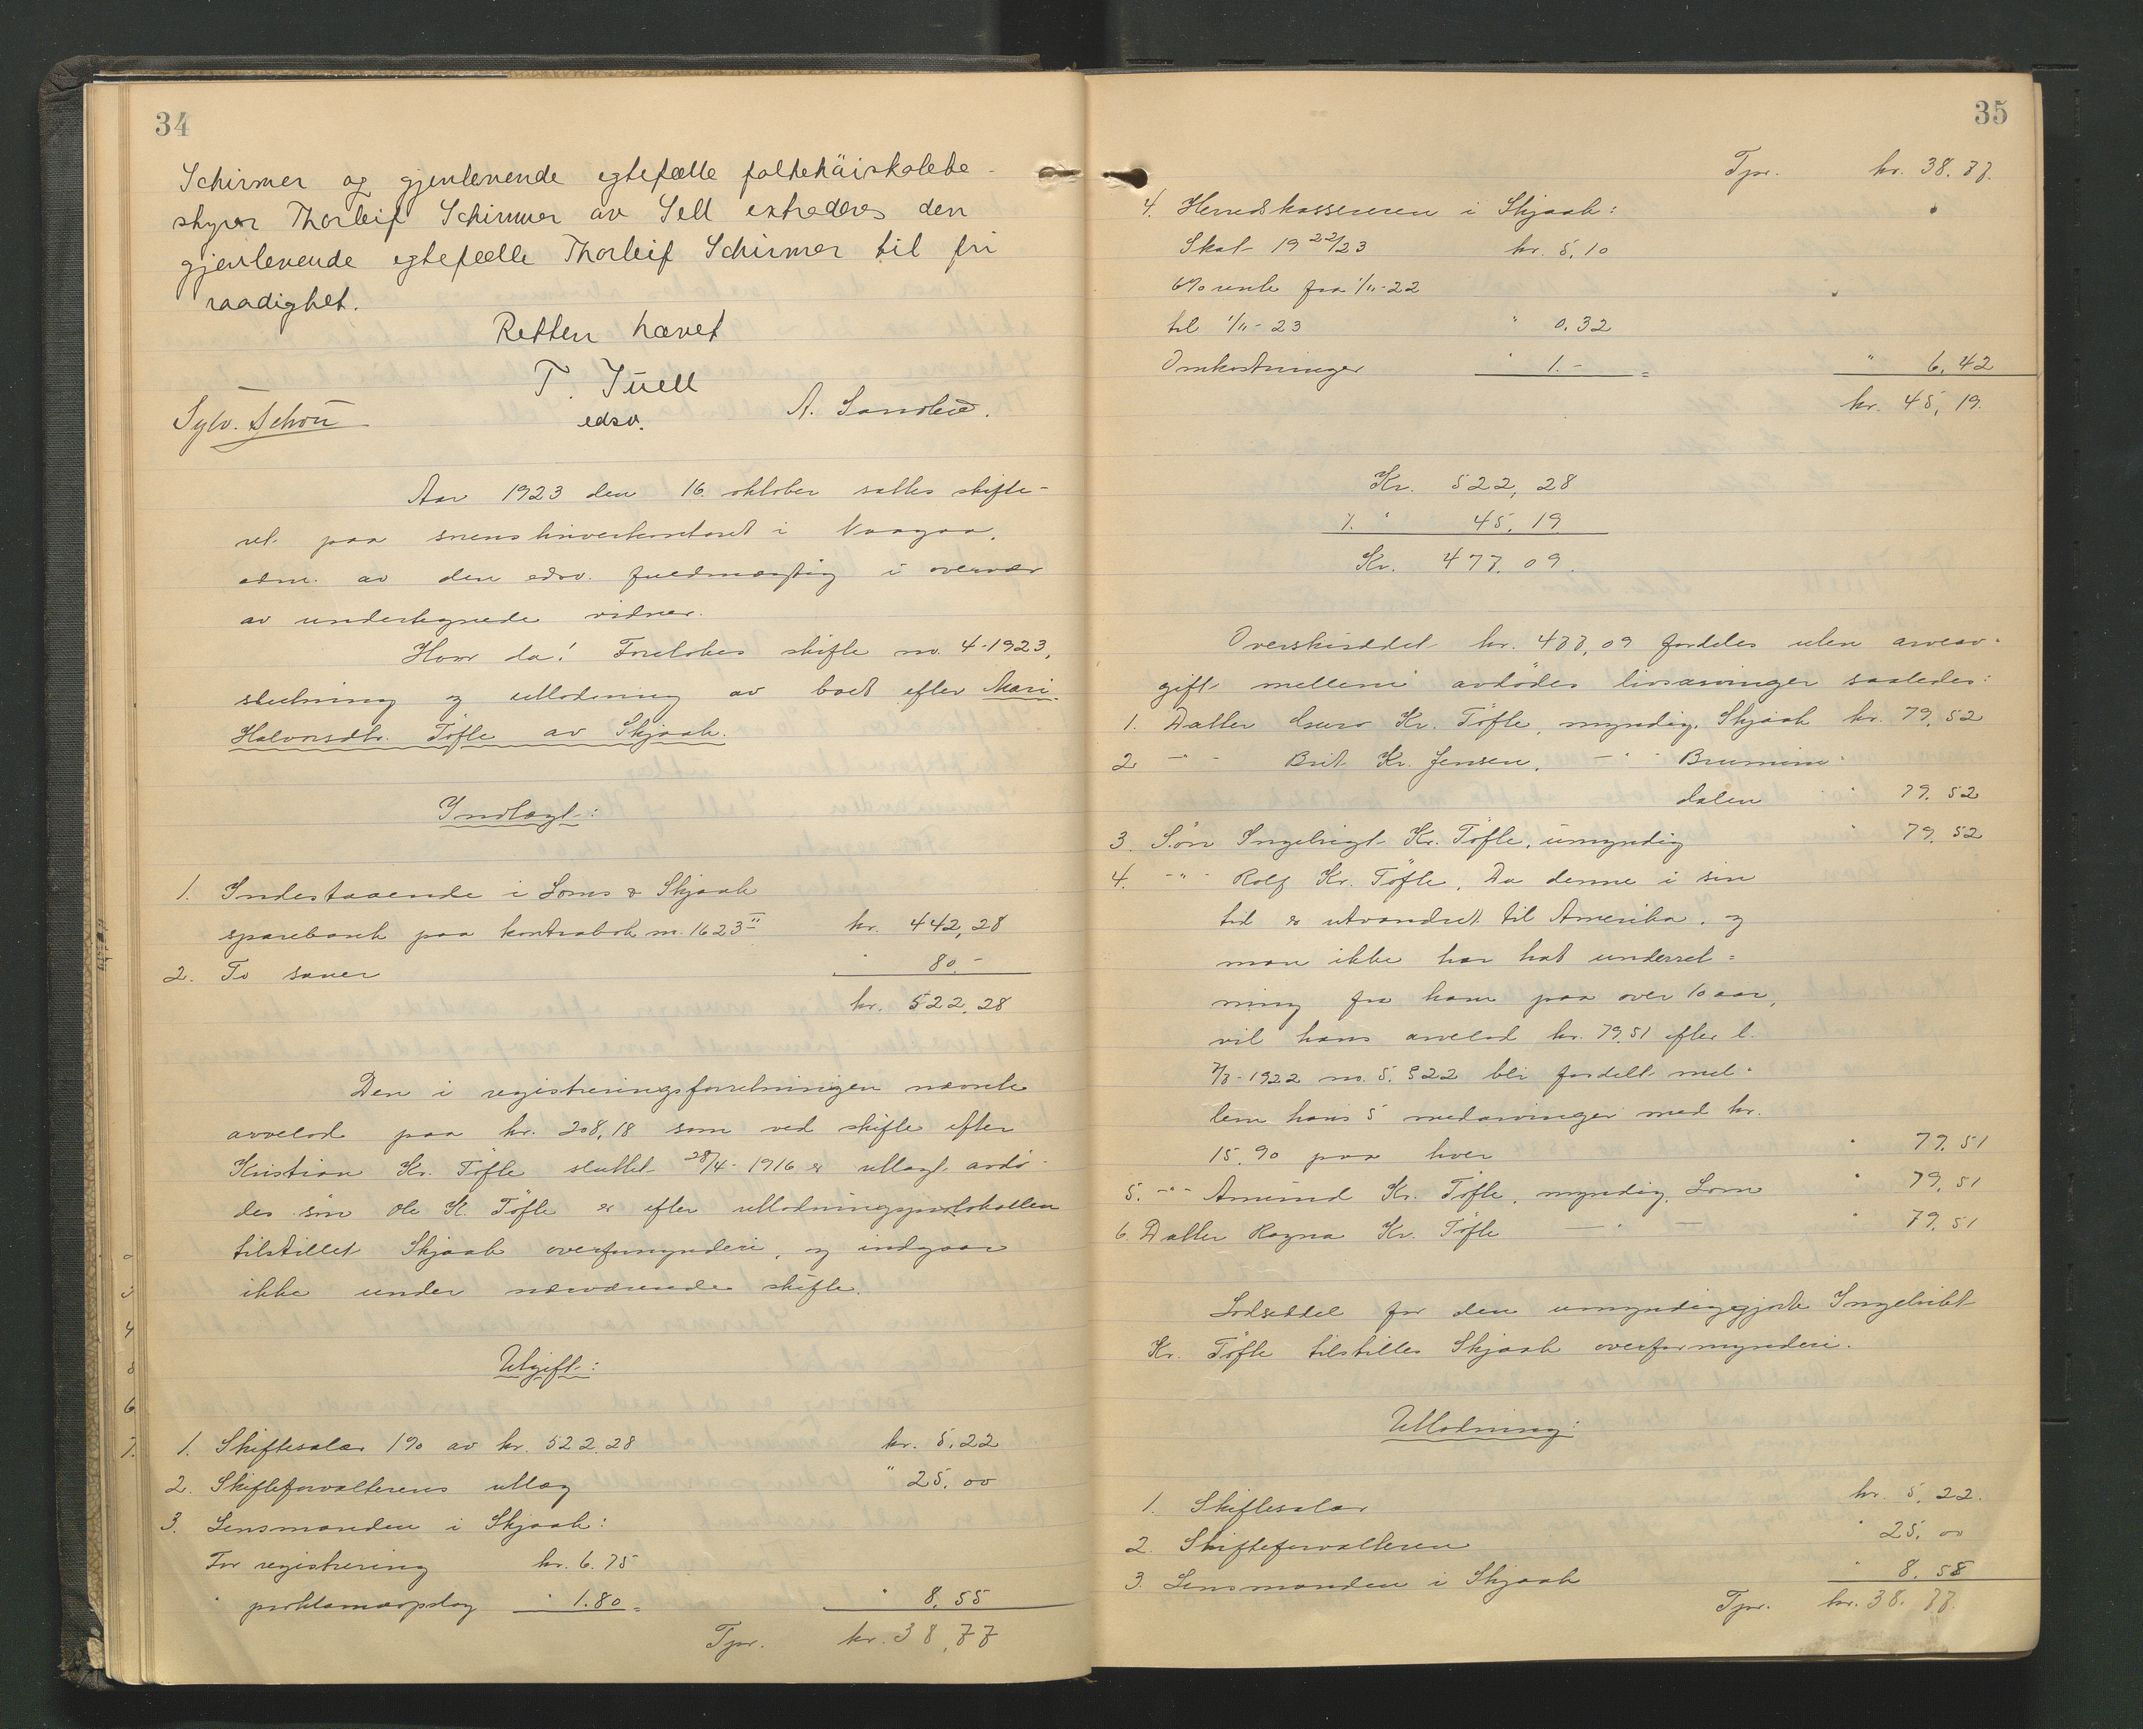 34
Schirmer og gjenlevende egtefælle folkehøiskolebe-
styrer Thorleif Schirmer av Sell extraderes den
gjenlevende egtefælle Thorleif Schirmer til fri
raadighet.
Retten hævet
T. Juell
edsv.
Sylv. Schou
A. Sandbu.
Aar 1923 den 16. oktober sattes skifte-
ret paa sorenskriverkontoret i Vaagaa,
adm. av den edsv. fuldmægtig i overvær
av undertegnede vidner.
Hvor da! Foretokes skifte nr. 4-1923,
slutning og utlodning av boet efter Mari
Halvorsdtr. Töfte av Skjaak.
Indtægt:
1. Indestaaende i Loms & Skjaak
sparebank paa kontrabok nr. 1623 II kr. 442,28
2. To sauer " 80.-
kr. 522,28
Den i registreringsforretningen nævnte
arvelod paa kr. 208,18 som ved skifte efter
Kristian Kr. Töfte sluttet 28/4-1916 er utlagt avdö-
des sön Ole K. Töfte er efter utlodningsprotokollen
tilstillet Skjaak overformynderi, og indgaar
ikke under nærværende skifte.
Utgift:
1. Skiftesalær 1% av kr. 522.28 kr. 5.22
2. Skifteforvalterens utlæg " 25.00
3. Lensmanden i Skjaak:
For registrering kr. 6.75
" proklamaopslag " 1.80 = " 8.55
Tpr. kr. 38,77
35
Tpr. kr. 38.77.
4. Herredskassereren i Skjaak:
Skat 1922/23 kr. 5,10
6% rente fra 1/11-22
til 1/11-23 " 0.32
Omkostninger " 1.- = " 6,42
kr. 45,19.
Kr. 522,28
÷ " 45,19
Kr. 477,09.
Overskuddet kr. 477,09 fordeles uten arveav-
gift mellem avdödes livsarvinger saaledes:
1. Datter Guro Kr. Töfte, myndig, Skjaak kr. 79,52
2. -"- Brit Kr. Jensen, -"- Brumun-
dalen " 79.52
3. Sön Ingebrigt Kr. Töfte, umyndig " 79,52
4. -"- Rolf Kr. Töfte. Da denne i sin
tid er utvandret til Amerika, og
man ikke har hat underret-
ning fra ham paa over 10 aar,
vil hans arvelod kr. 79,51 efter l.
7/7-1922 nr. 5. § 22 bli fordelt mel-
lem hans 5 medarvinger med kr.
15.90 paa hver " 79.51
5. -"- Amund Kr. Töfte, myndig, Lom " 79,51
6. Datter Ragna Kr. Töfte -"- " 79,51
Lodseddel for den umyndiggjorte Ingebrikt
Kr. Töfte tilstilles Skjaak overformynderi.
Utlodning:
1. Skiftesalær kr. 5,22.
2. Skifteforvalteren " 25.00
3. Lensmanden i Skjaak " 8.55
Tpr. kr. 38.77.